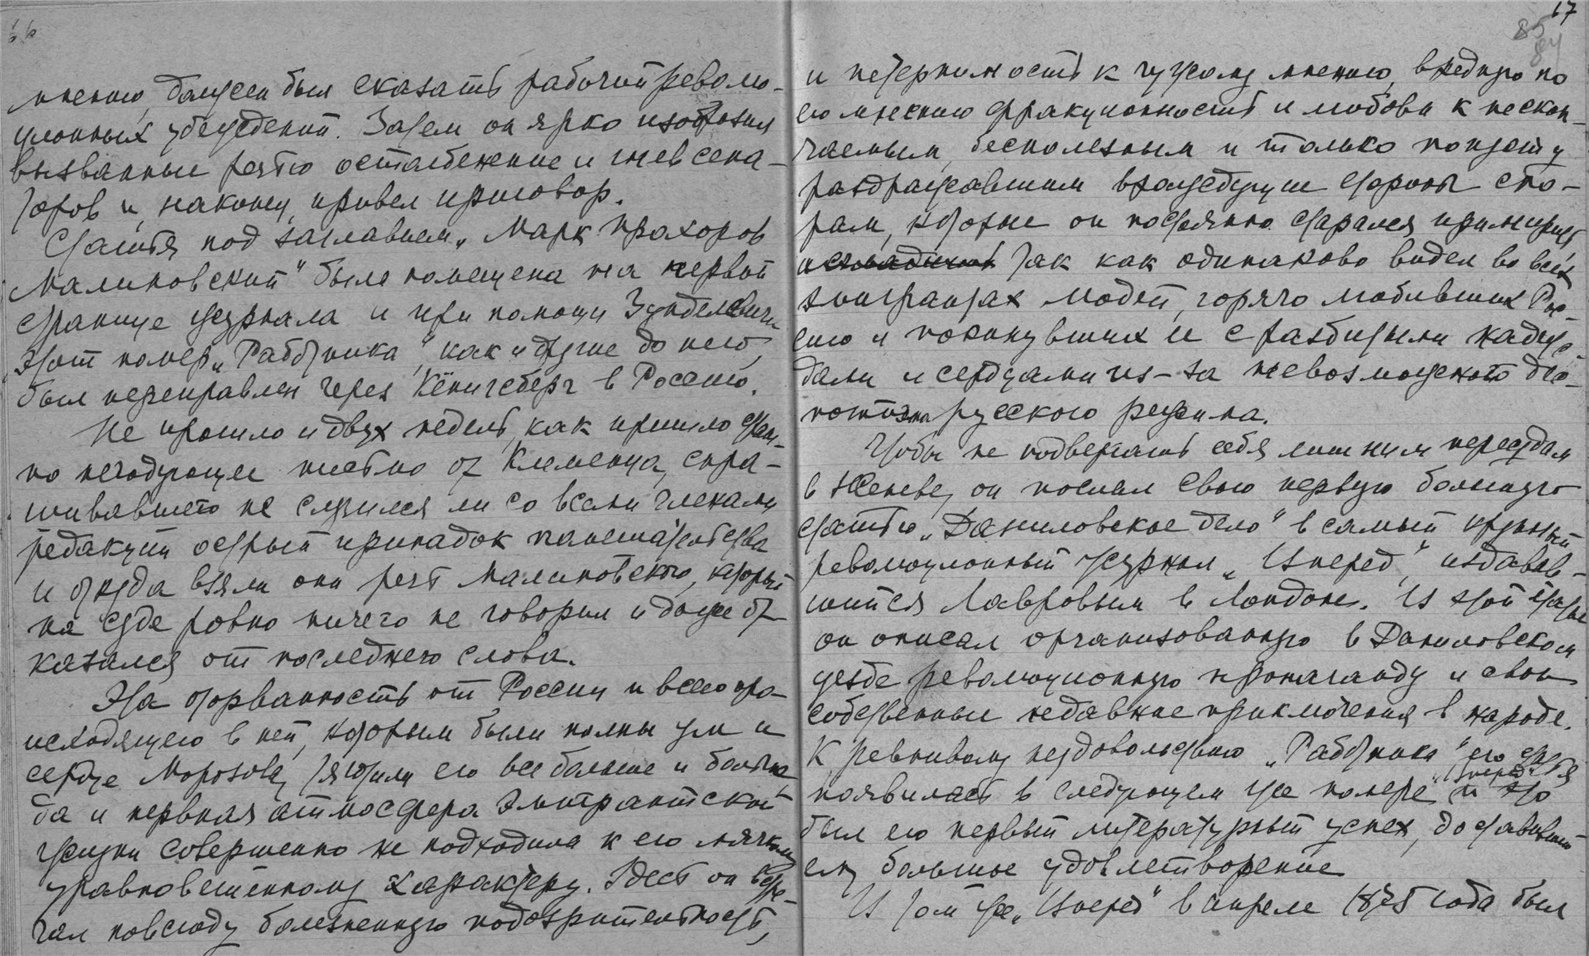 16
мнению, должен был сказать рабочий револю-
ционных убеждений. Затем он ярко изобразил
вызванные речью остолбенение и гнев сена-
торов и, наконец, привел приговор.
Статья под заглавием „Марк Прохоров
Малиновский" была помещена на первой
странице журнала и при помощи Зунделевича
этот номер „Работника", как и другие до него,
был переправлен через Кёнигсберг в Россию.
Не прошло и двух недель, как пришло
но негодующее письмо от Клеменца, спра-
шивавшего не случился ли со всеми членами
редакции острый припадок
и откуда взяли они речь Малиновского, который
на суде ровно ничего не говорил и даже от-
казался от последнего слова.
Эта оторванность от России и всего про-
исходящего в ней, которым были полны ум и
сердце Морозова, тяготили его все больше и больше
да и нервная атмосфера эмигрантской
жизни совершенно не подходила к его мягкому
уравновешенному характеру. Здесь он встре-
чал повсюду болезненную подозрительность,
17
85
84
и нетерпимость к чужому мнению, вредную по
его мнению фракционность и любовь к нескон-
чаемым, бесполезным и только попусту
раздражавшим враждующие стороны спо-
рам, которые он постоянно старался примирить
так как одинаково видел во всех
эмигрантах людей, горячо любивших Рос-
сию и покинувших ее с разбитыми надеж-
дами и сердцами из-за невозможного дес-
потизма русского режима.
Чтобы не подвергать себя лишним пересудам
в Женеве, он послал свою первую большую
статью „Даниловское дело" в самый крупный
революционный журнал „Вперед", издавав-
шийся Лавровым в Лондоне. В этой статье
он описал организованную в Даниловском
уезде революционную пропаганду и свои
собственные недавние приключения в народе.
К ревнивому неудовольствию „Работника" его статья
появилась в следующем же номере „Вперед" и это
был его первый литературный успех, доставивший
ему большое удовлетворение
В том же „Вперед" в апреле 1875 года был